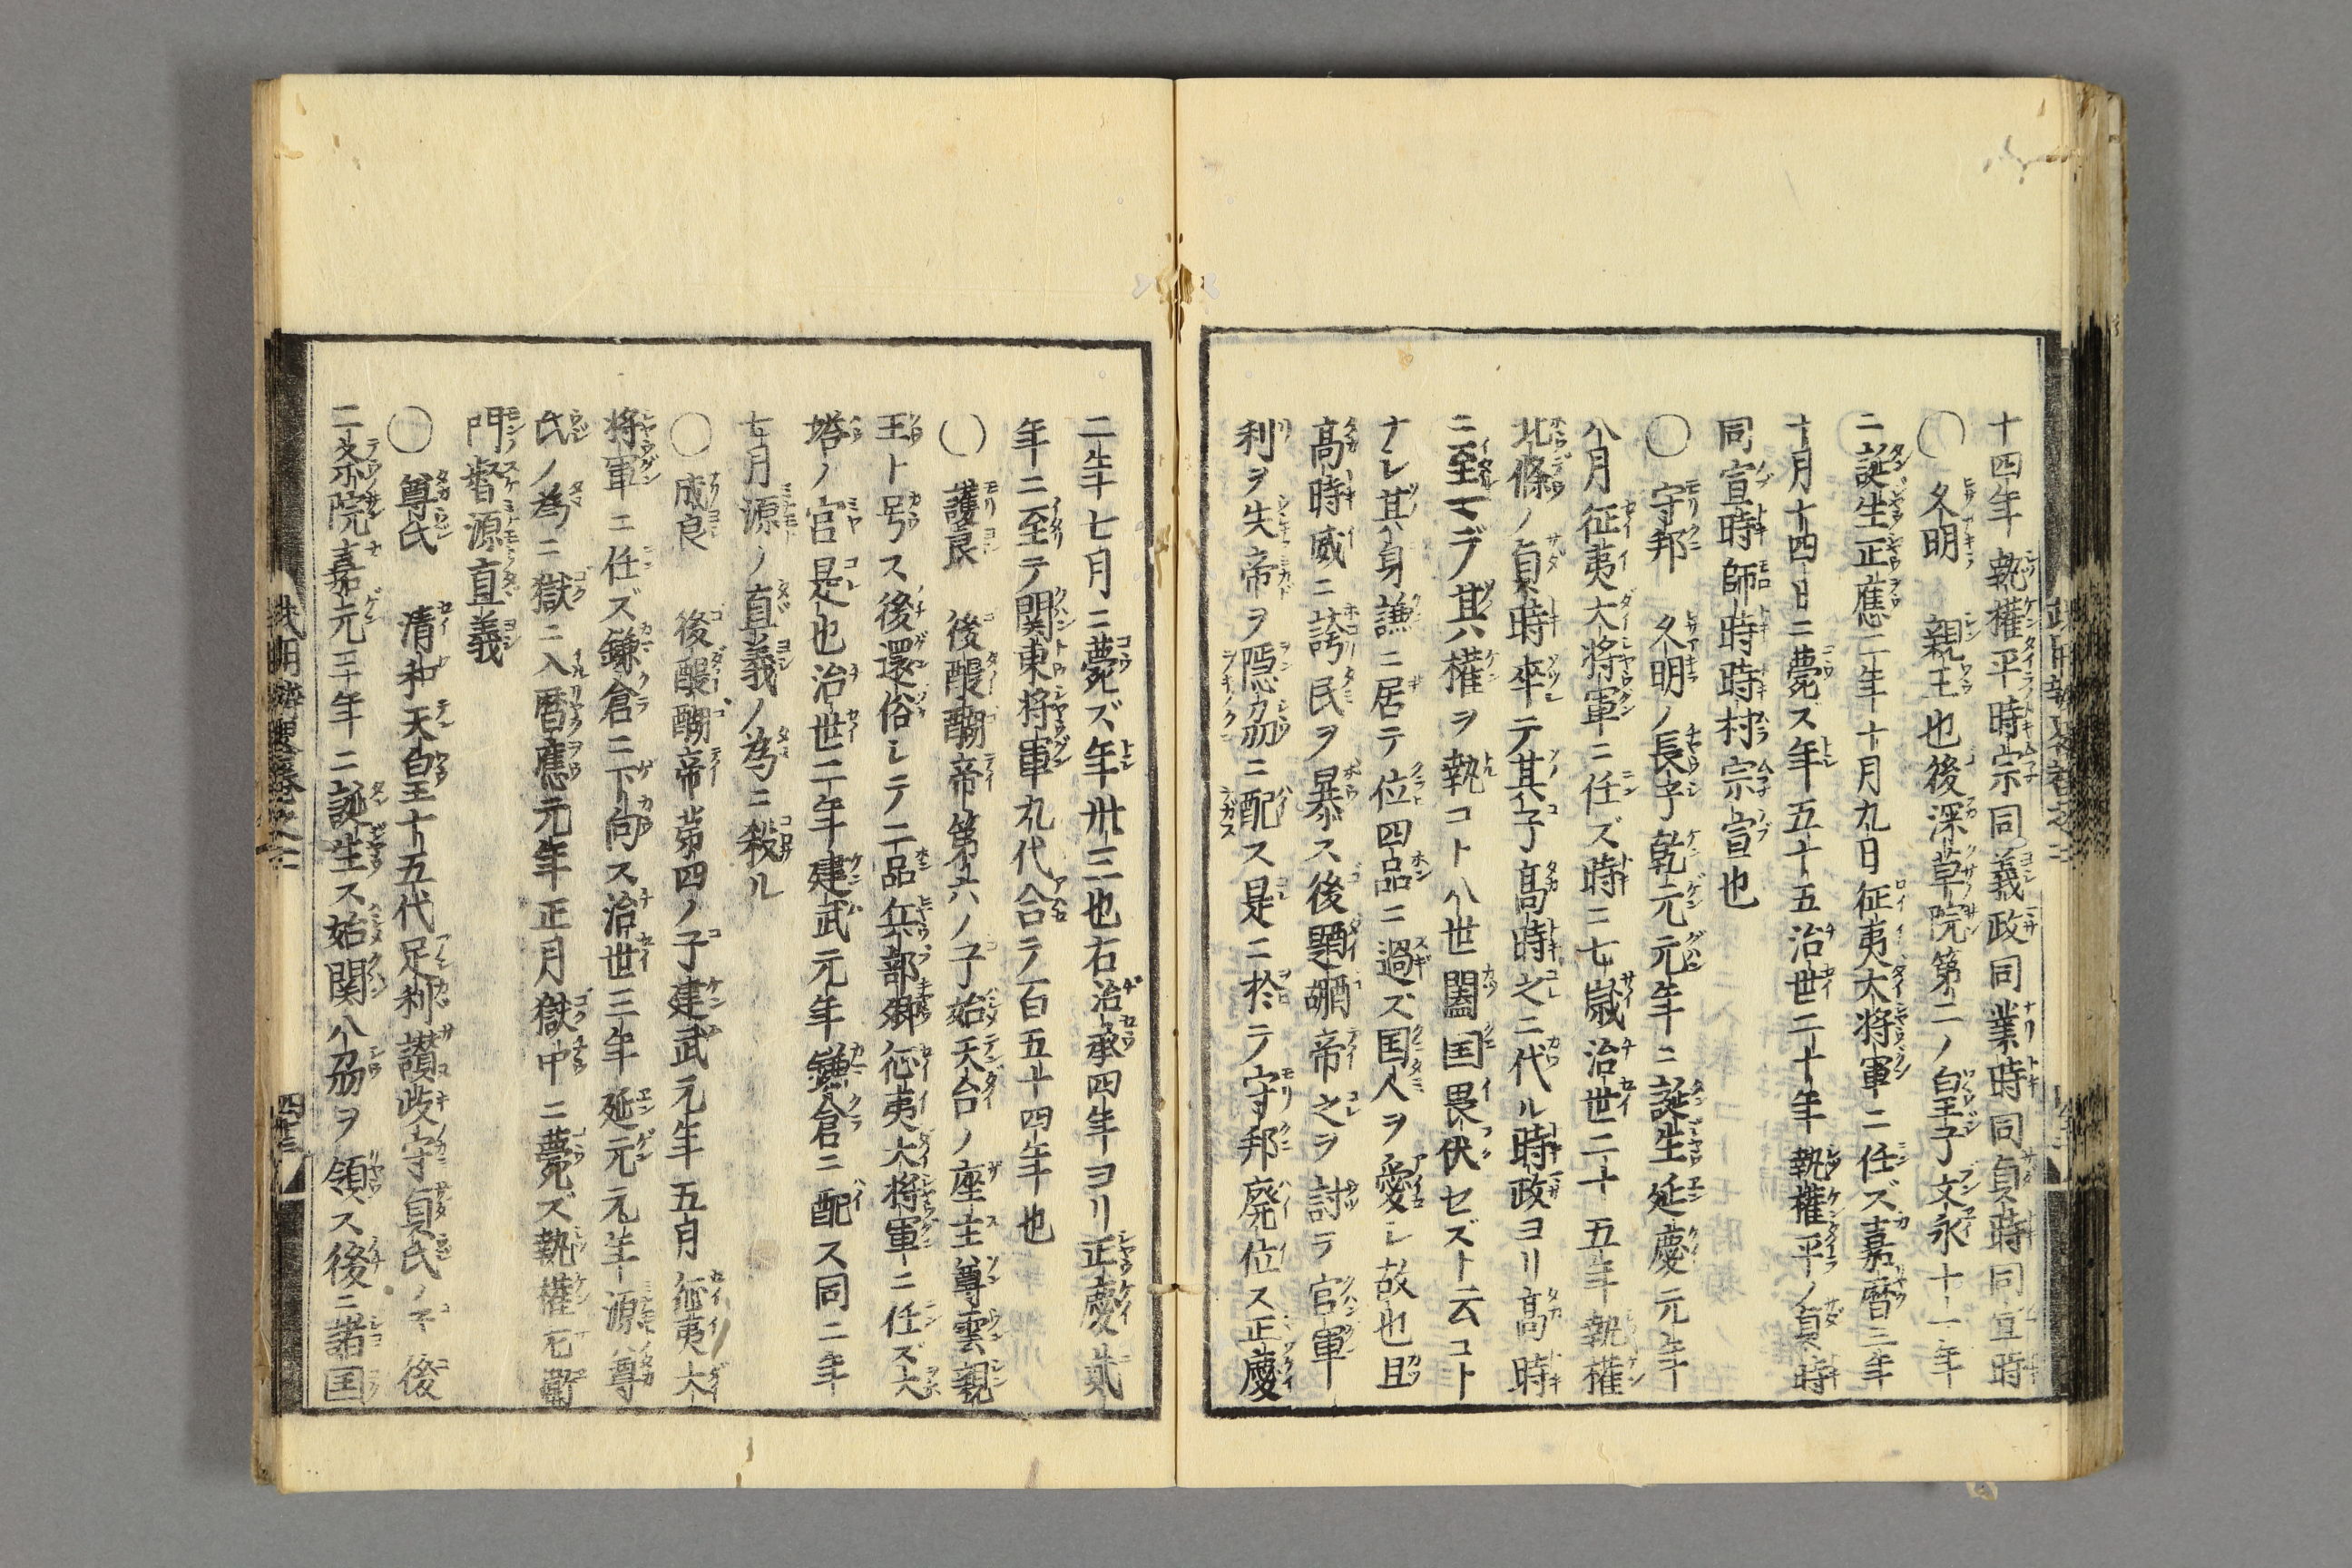 十四年執權平時宗同義政同業時同貞時同宣時
〇久明 親王也後深草院第二ノ皇子文永十一年
ニ誕生正應二年十月九日征夷大将軍ニ任ズ嘉暦三年
十月十四日ニ薨ス年五十五治世二十年執權平ノ貞時
同宣時師時時村宗宣也
〇守邦 久明ノ長子乾元元年ニ誕生延慶元年
八月征夷大将軍ニ任ズ時ニ七歳治世二十五年執權
北條ノ貞時卒テ其子高時之ニ代ル時政ヨリ高時
ニ至マデ其権ヲ執コト八世闔国畏伏セズト云コト
ナレ其身謙ニ居テ位四品ニ過ズ国人ヲ愛レ故也且
高時威ニ誇民ヲ暴ス後醍醐帝之ヲ討テ官軍
利ヲ失帝ヲ隠刕ニ配ス是ニ於テ守邦廃位ス正慶
二年七月ニ薨ズ年卅三也右治承四年ヨリ正慶貳
年ニ至テ関東将軍九代合テ一百五十四年也
〇護良 後醍醐帝第六ノ子始天台ノ座主尊雲親
王ト号ス後還俗レテ二品兵部卿征夷大将軍ニ任ズ大
塔ノ宮是也治世二年建武元年鎌倉ニ配ス同二年
七月源ノ直義ノ為ニ殺ル
〇成良 後醍醐帝第四ノ子建武元年五月征夷大
将軍ニ任ズ鎌倉ニ下向ス治世三年延元元年源尊
氏ノ為ニ獄ニ入暦應元年正月獄中ニ薨ズ執權左衛
門督源直義
〇尊氏 清和天皇十五代足利讃岐守貞氏ノ子後
二条院嘉元三年ニ誕生ス始関八刕ヲ領ス後ニ諸国
四十三